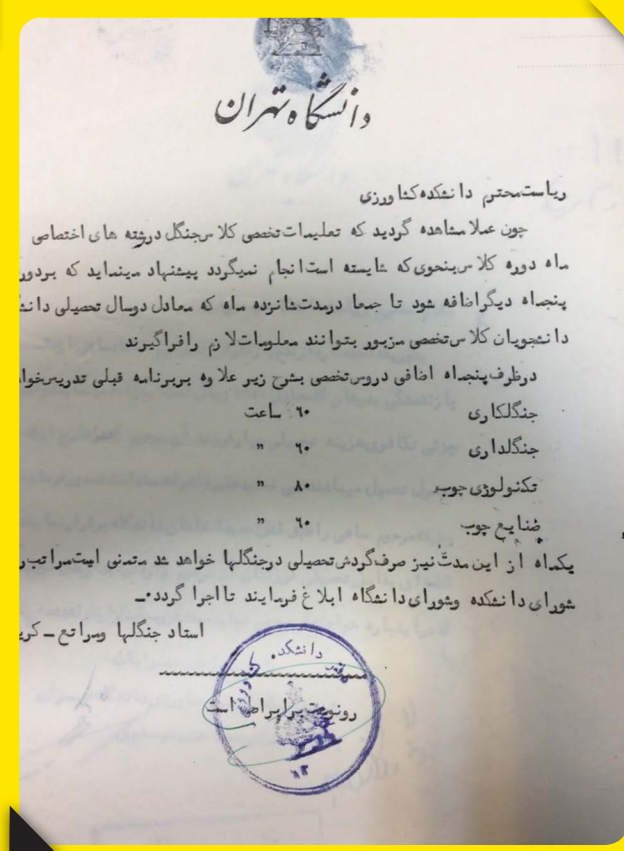 دانشگاه تهران
ریاست محترم دانشکده کشاورزی
چون عملا مشاهده گردید که تعلیمات تخصصی کلاس جنگل در رشته های اختصاصی
ماه دوره کلاس بنحوی که شایسته است انجام نمیگردد پیشنهاد مینماید که بردور
پنجماه دیگر اضافه شود تا جمعا درمدت شانزده ماه که معادل دوسال تحصیلی دانش
دانشجویان کلاس تخصصی مزبور بتوانند معلومات لازم را فراگیرند
درظرف پنجماه اضافی دروس تخصصی بشرح زیر علاوه بربرنامه قبلی تدریس خوا
جنگلکاری ۶۰ ساعت
جنگلداری ۶۰ "
تکنولوژی چوب ۸۰ "
صنایع چوب ۶۰ "
یکماه از این مدت نیز صرف گردش تحصیلی درجنگلها خواهد شد متمنی است مراتب ر
شورای دانشکده وشورای دانشگاه ابلاغ فرمایند تا اجرا گردد.ـ
استاد جنگلها ومراتع ـ کری
دفتر دانشکده کشاورزی
رونوشت برابر اصل است